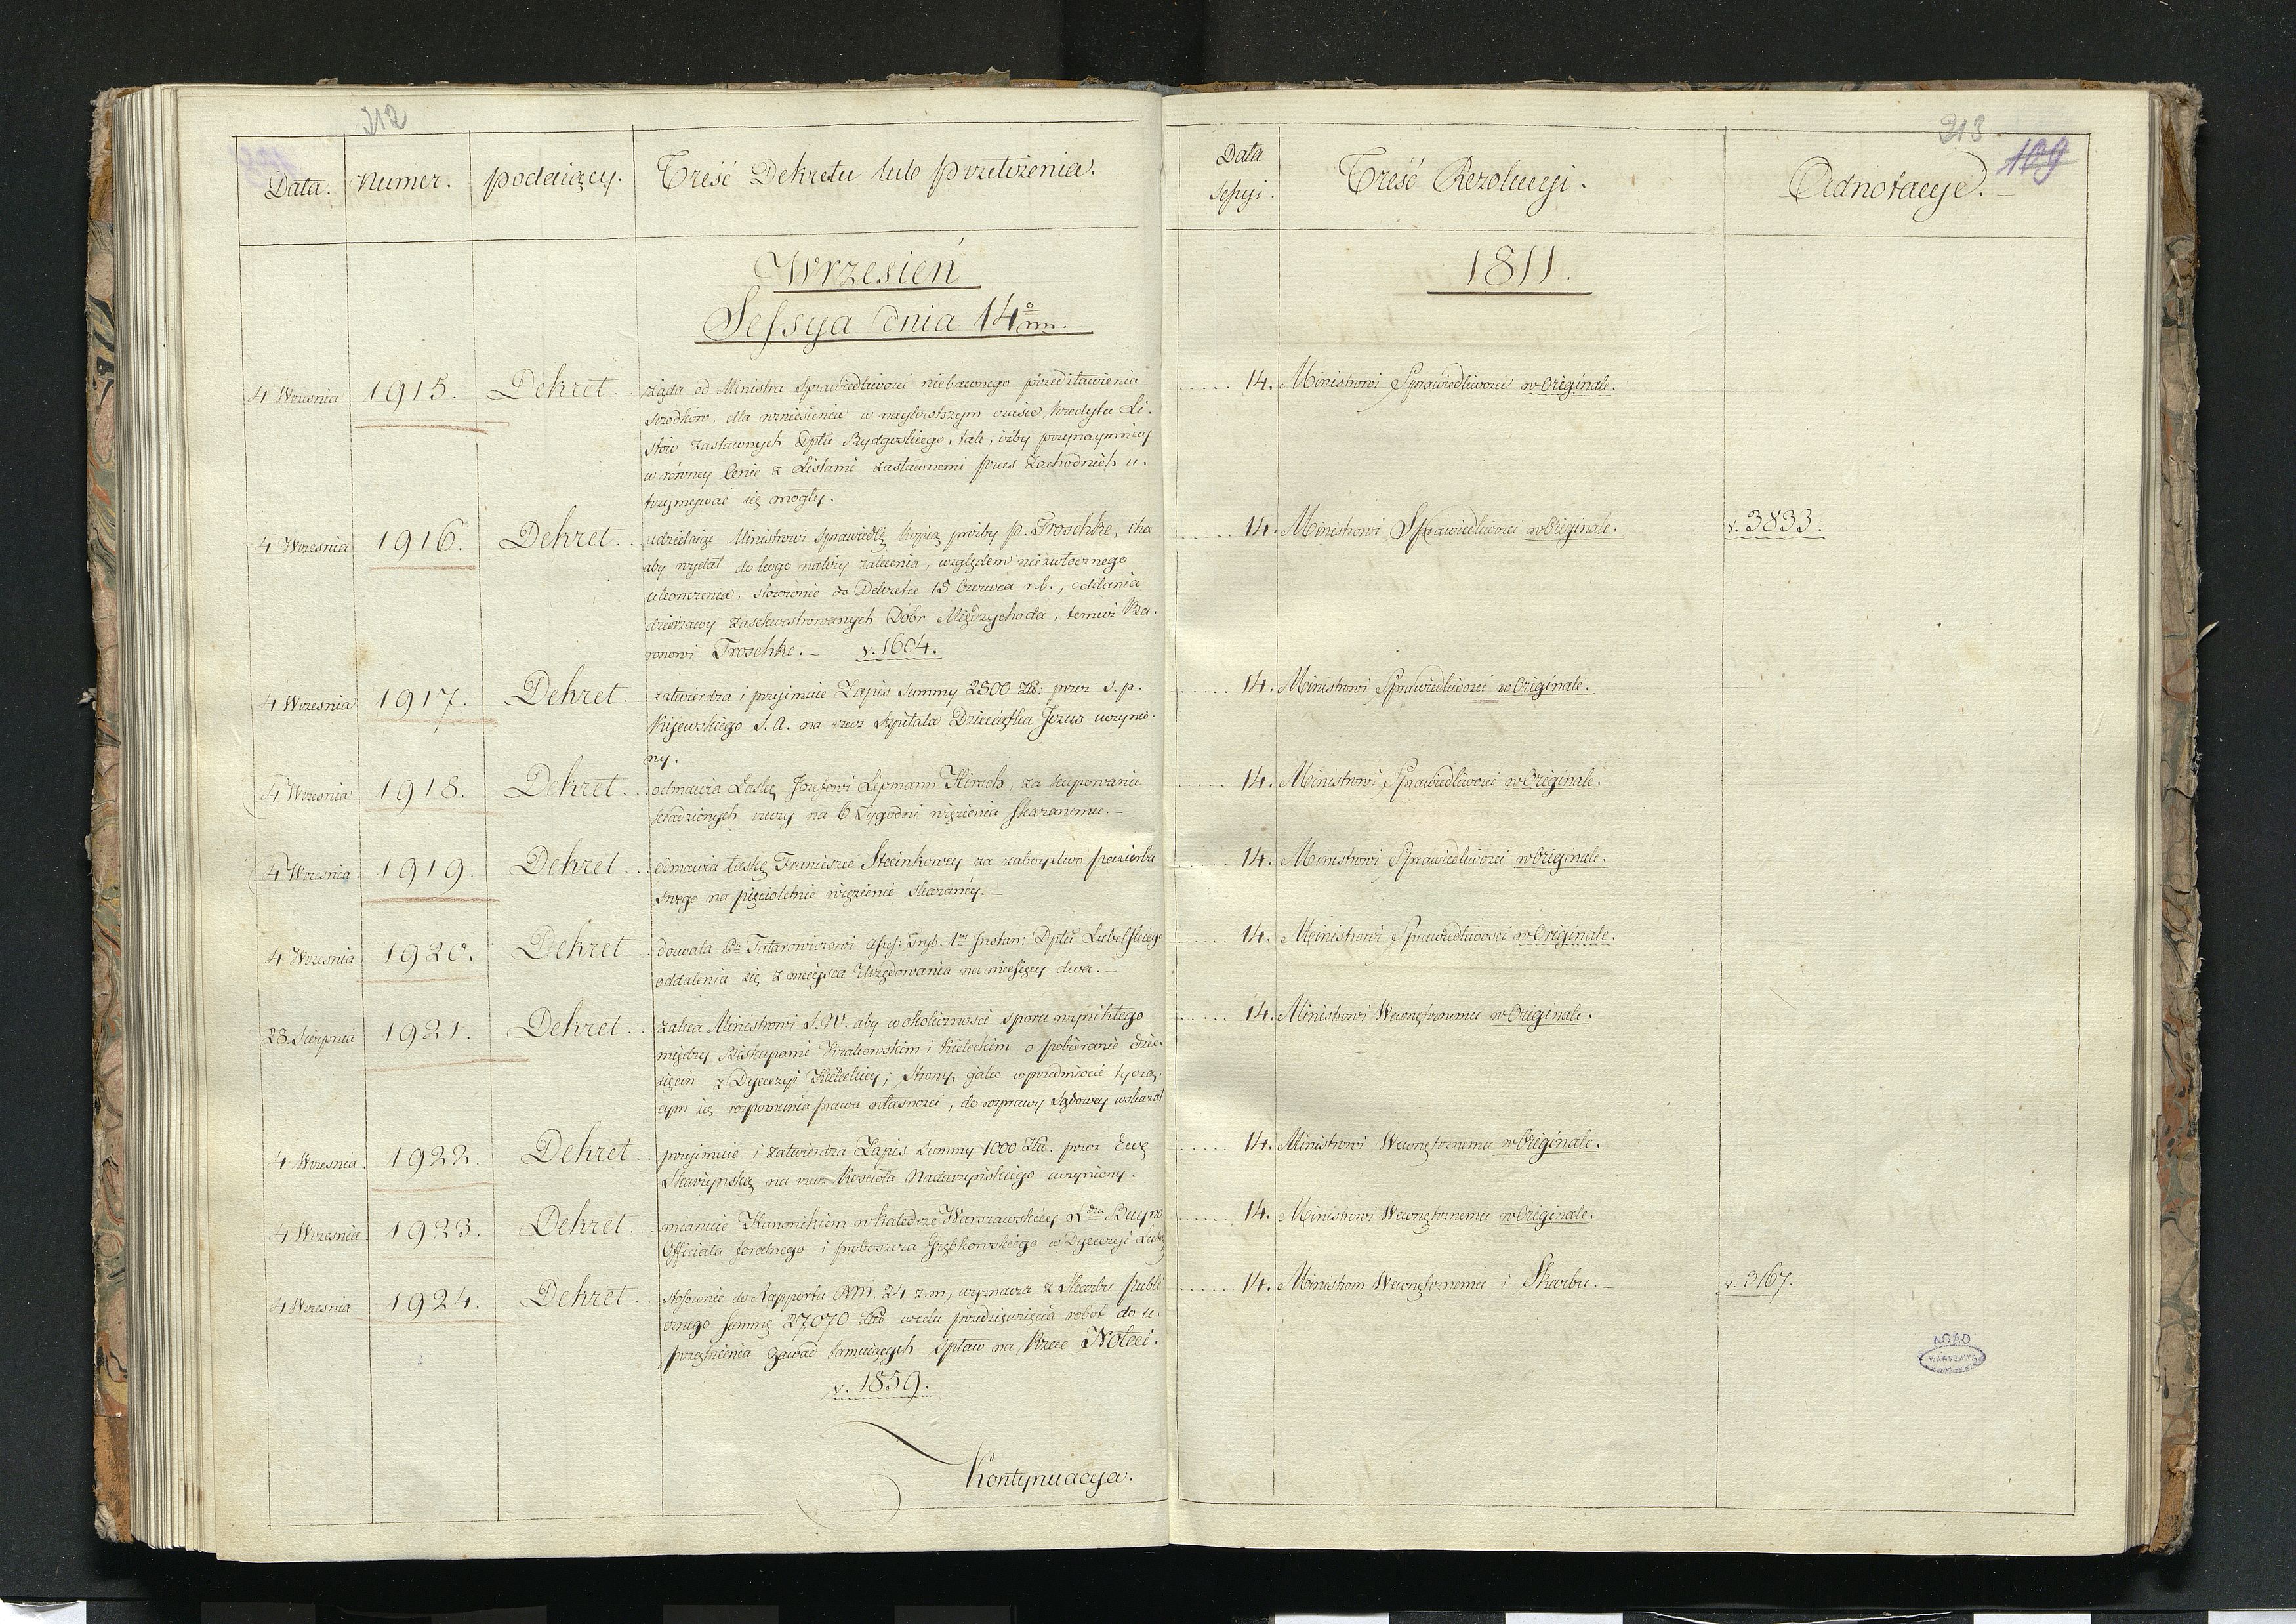 212
Data. Numer. podaiący. Treść Dekretu lub przełożenia.
Wrzesień
Sessya dnia 14º m.
4 Wrzesnia 1915. Dekret. żąda od Ministra Sprawiedliwości niebawnego przedstawienia
srzodków, dla wzniesienia w naykrotszym czasie kredytu Li-
stów zastawnych Dptu Bydgoskiego, tak, iżby przynaymniey
w równey Cenie z Listami zastawnemi Prus Zachodnich u-
trzymywać się mogły.
4 Wrzesnia 1916. Dekret. udzielaiąc Ministrowi Sprawiedlı kopią prożby P. Troschke, chce
aby wydał do kogo należy zalecenia, względem niezwłocznego
ukonczenia, stosownie do Dekretu 15 Czerwca r.b., oddania
dzierżawy zasekwestrowanych Dóbr Międzychoda, temuż Ba-
ronowi Troschke. – v. 1604.
4 Wrzesnia 1917. Dekret. zatwierdza i przyimuie Zapis Summy 2500 Złł: przez s.p.
Kijewskiego S.A. na rzecz Szpitala Dzieciątka Jezus uczynio-
ny.
4 Wrzesnia 1918. Dekret. odmawia Łaskę Jozefowi Lipmann Hirsch, za kupowanie
kradzionych rzeczy na 6 Tygodni więzienia skazanemu. –
4 Wrzesnia. 1919. Dekret. odmawia łaskę Franciszce Stecinkowey za zaboystwo pasierba
swego na pięcioletnie więzienie skazanéy. –
4 Wrzesnia 1920. Dekret. dozwala Pu Tatarowiczowi Assess: Tryb. 1ey Instan: Dptu Lubelskiego
oddalenia się z mieysca Urzędowania na miesięcy dwa. –
28 Sierpnia 1921. Dekret. zaleca Ministrowi S.W. aby w okoliczności sporu wynikłego
między Biskupami Krakowskim i Kieleckim o pobieranie dzie-
sięcin z Dyecezyi Kieleckiey; Strony, jako w przedmiocie tyczą-
cym się rozpoznania prawa własności, do rozprawy Sądowey wskazał.
4 Wrzesnia. 1922. Dekret. przyimuie i zatwierdza Zapis Summy 1000 Złł. przez Ewę
Skarzyńską na rzecz Kościoła Nadarzyńskiego uczyniony.
4 Wrzesnia. 1923. Dekret. mianuie Kanonikiem w katedrze Warszawskiéy Xdza Buyno
Officiała foralnego i proboszcza Grębkowskiego w Dyecezyi Lub.
4 Wrzesnia 1924. Dekret. stosownie do Rapportu RM. 24 z.m., wyznacza z Skarbu Publi-
cznego Summę 27,070 Złł. w celu przedsięwzięcia robot do u-
przątnienia zawad tamuiących spław na Rzece Noteci.
v. 1859.
Kontynuacya.
213
109
Data Sessyi. Treść Rezolucyi. Adnotacye. –
1811.
14. Ministrowi Sprawiedliwosci w Originale.
14. Ministrowi Sprawiedliwosci w Originale. v. 3833.
14. Ministrowi Sprawiedliwosci w Originale.
14. Ministrowi Sprawiedliwosci w Originale.
14. Ministrowi Sprawiedliwosci w Originale.
14. Ministrowi Sprawiedliwosci w Originale.
14. Ministrowi Wewnętrznemu w Originale.
14. Ministrowi Wewnętrznemu w Originale.
14. Ministrowi Wewnętrznemu w Originale.
14. Ministrom Wewnętrznemu i Skarbu. – v. 3167.
AGAD
WARSZAWA